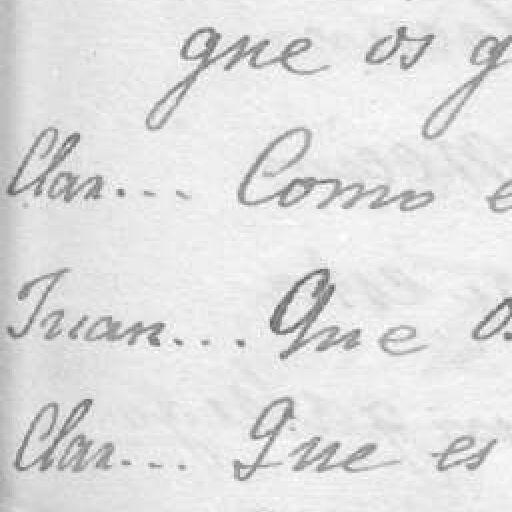 que os
Clar... Como
Juan... Que
Clar... Que es